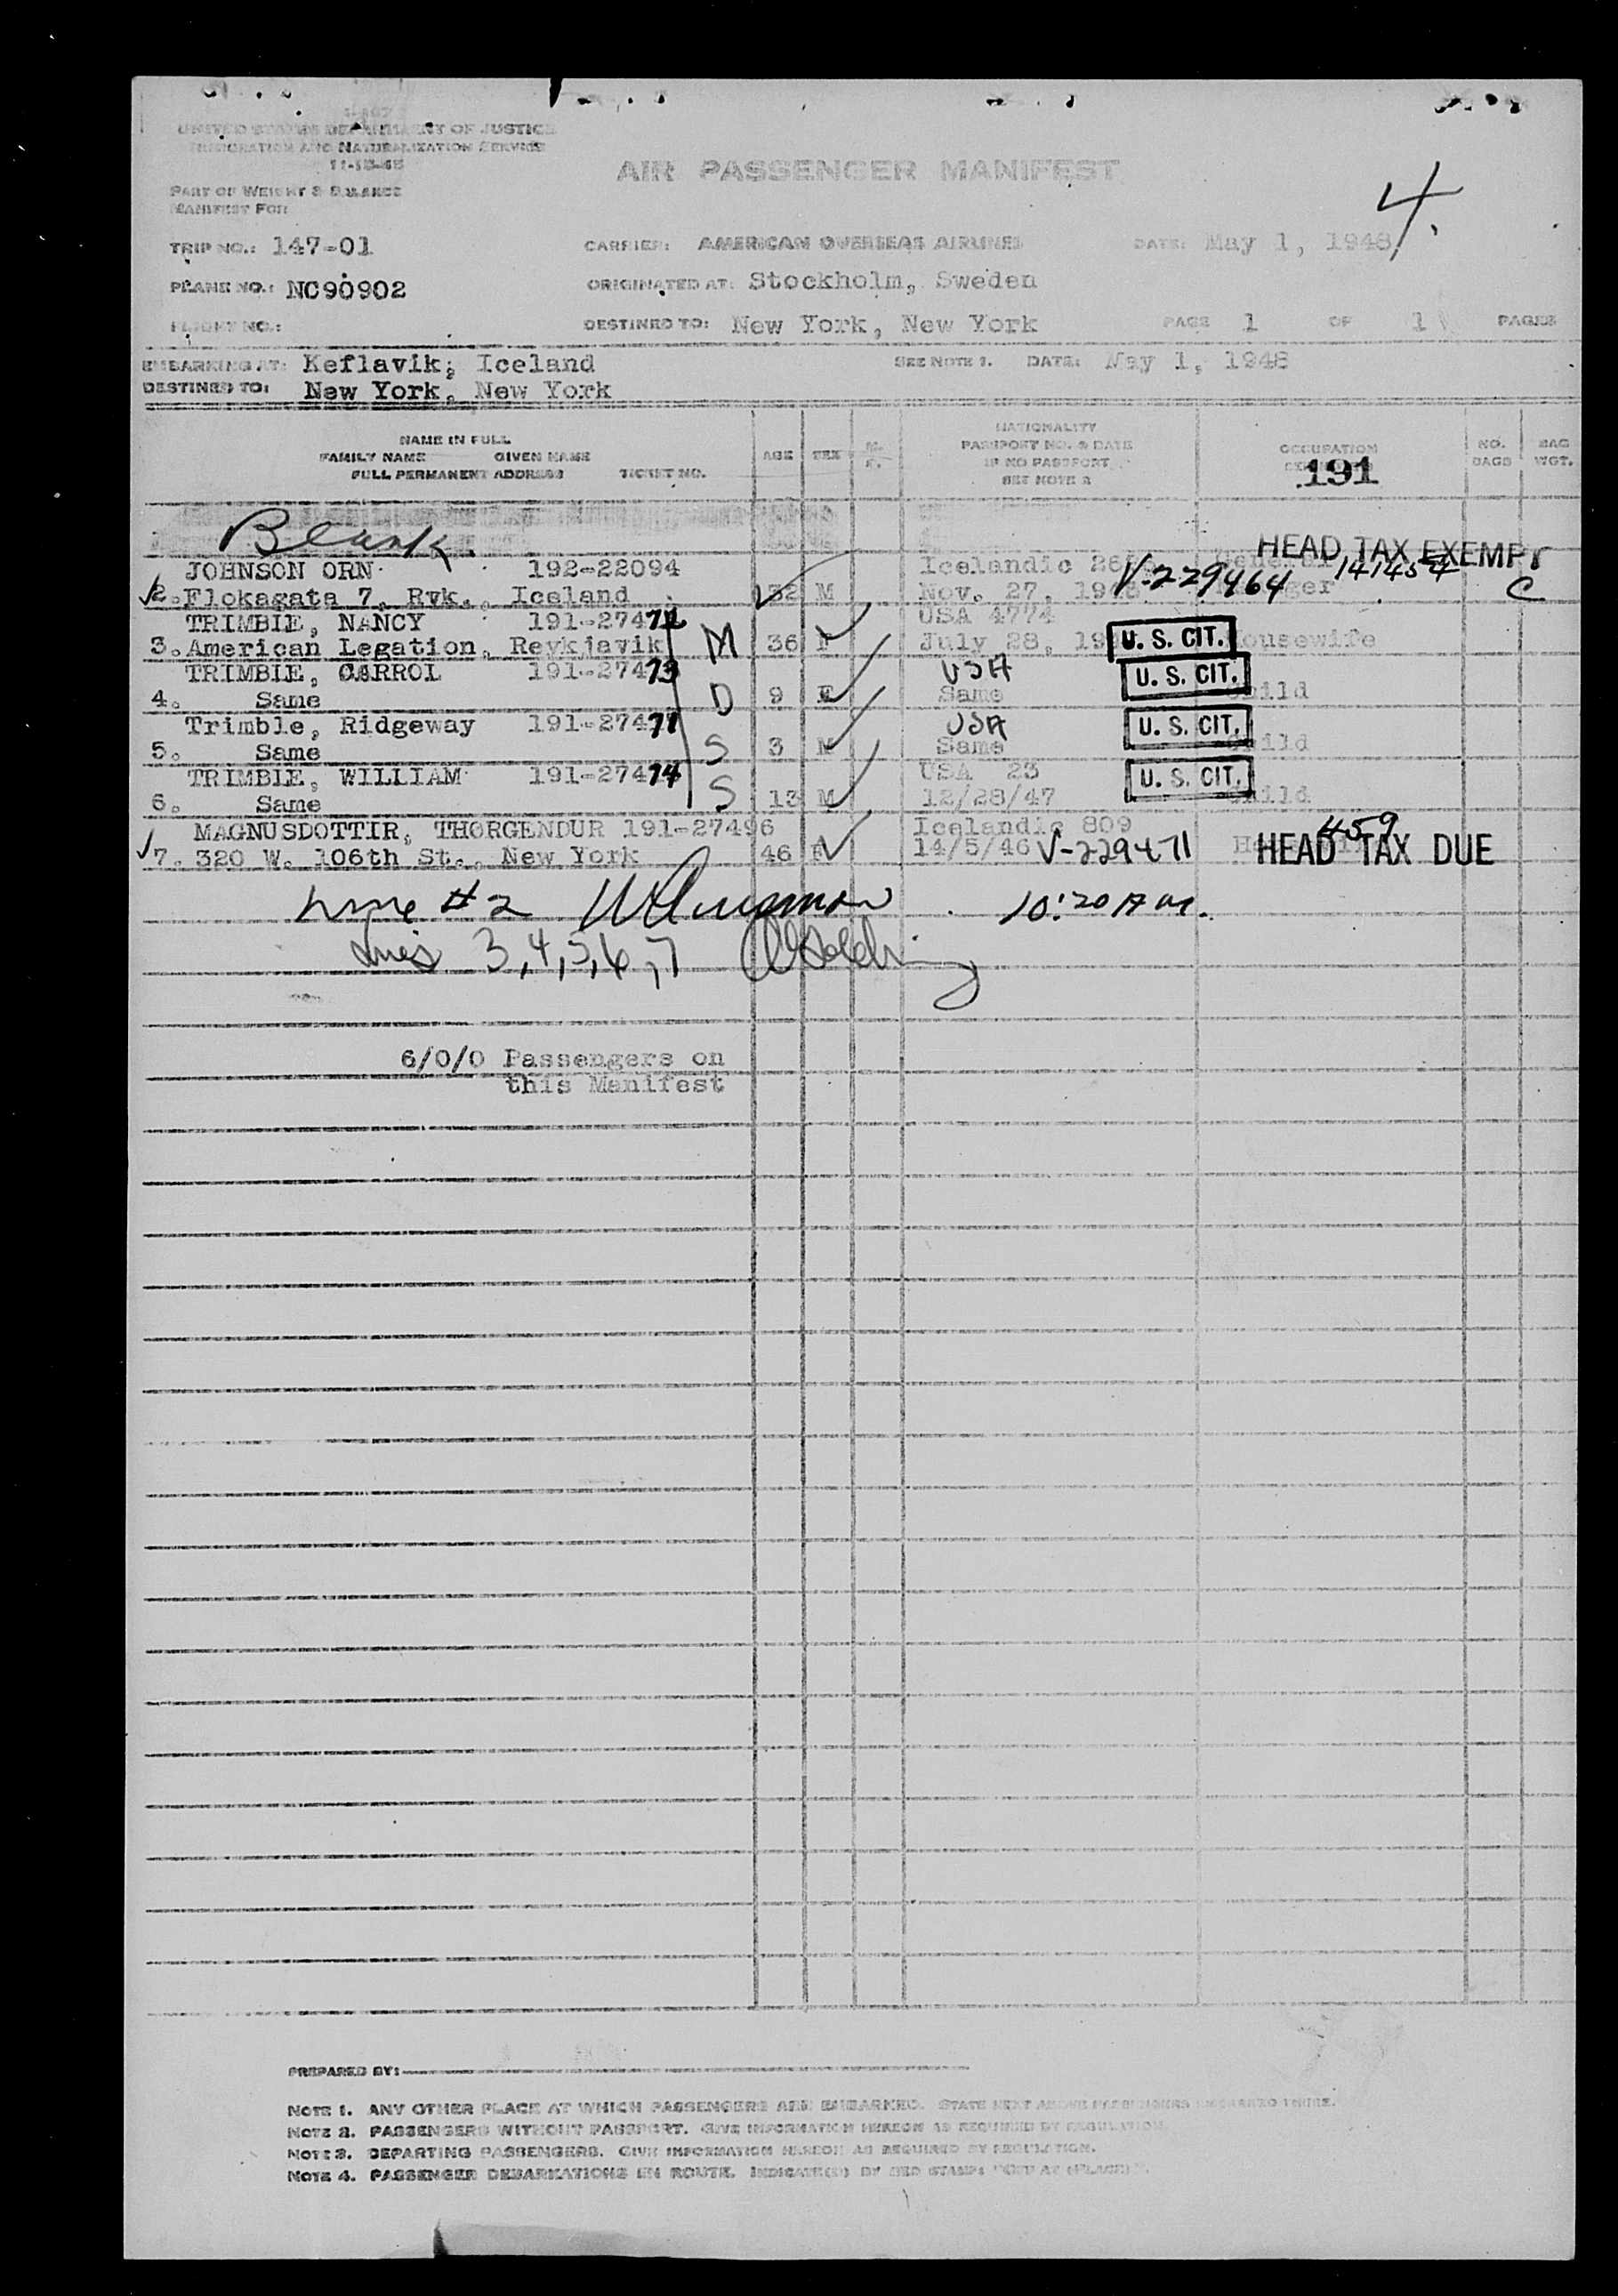 UNITED STATES DEPARTMENT OF JUSTICE
IMMIGRATION AND NATURALIZATION SERVICE
11-15-45
AIR PASSENGER MANIFEST
4.
PART OF WEIGHT & BALANCE
MANIFEST FOR
TRIP NO.: 147-01 CARRIER: AMERICAN OVERSEAS AIRLINES DATE: May 1, 1948
PLANE NO.: NC90902 ORIGINATED AT: Stockholm, Sweden
FLIGHT NO.: DESTINED TO: New York, New York PAGE 1 OF 1 PAGES
EMBARKING AT: Keflavik, Iceland SEE NOTE 1. DATE: May 1, 1948
DESTINED TO: New York, New York
NAME IN FULL
FAMILY NAME GIVEN NAME
FULL PERMANENT ADDRESS TICKET NO.
AGE SEX M. F.
NATIONALITY
PASSPORT NO. & DATE
IF NO PASSPORT
SEE NOTE 2
OCCUPATION
191
NO. BAGS
BAG WGT.
Blank.
HEAD TAX EXEMPT
JOHNSON ORN 192-22094 Icelandic General 141454
2. Flokagata 7, Rvk., Iceland 32 M Nov. 27, V-229464 C
TRIMBLE, NANCY 191-27472 USA 4774
3. American Legation, Reykjavik M 36 F July 28, U. S. CIT. Housewife
TRIMBLE, CARROL 191-27473 USA
4. Same D 9 F Same U. S. CIT. Child
Trimble, Ridgeway 191-27471 USA
5. Same S 3 M Same U. S. CIT. Child
TRIMBLE, WILLIAM 191-27474 USA 23
6. Same S 13 M 12/28/47 U. S. CIT. Child
MAGNUSDOTTIR, THORGENDUR 191-27496 Icelandic 809 459
7. 320 W. 106th St., New York 46 F 14/5/46 V-229471 HEAD TAX DUE
Line #2 10:20 AM.
Lines 3,4,5,6,7
6/0/0 Passengers on
this Manifest
PREPARED BY:
NOTE 1. ANY OTHER PLACE AT WHICH PASSENGERS ARE EMBARKED. STATE NEXT ABOVE PASSENGERS EMBARKED THERE.
NOTE 2. PASSENGERS WITHOUT PASSPORT. GIVE INFORMATION HEREON AS REQUIRED BY REGULATION.
NOTE 3. DEPARTING PASSENGERS. GIVE INFORMATION HEREON AS REQUIRED BY REGULATION.
NOTE 4. PASSENGER DEBARKATIONS EN ROUTE. INDICATE(S) BY RED STAMP: "OFF AT (PLACE)".